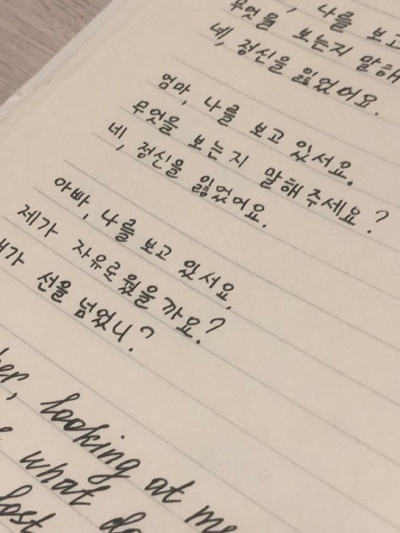 , 나를 보고
무엇을 보는지 말해
네, 정신을 잃었어요.
엄마, 나를 보고 있서요.
무엇을 보는지 말해주세요?
네, 정신을 잃었어요.
아빠, 나를 보고 있서요.
제가 자유로웠을가요?
내가 선을 넘었니?
her, looking at me
what do
lost